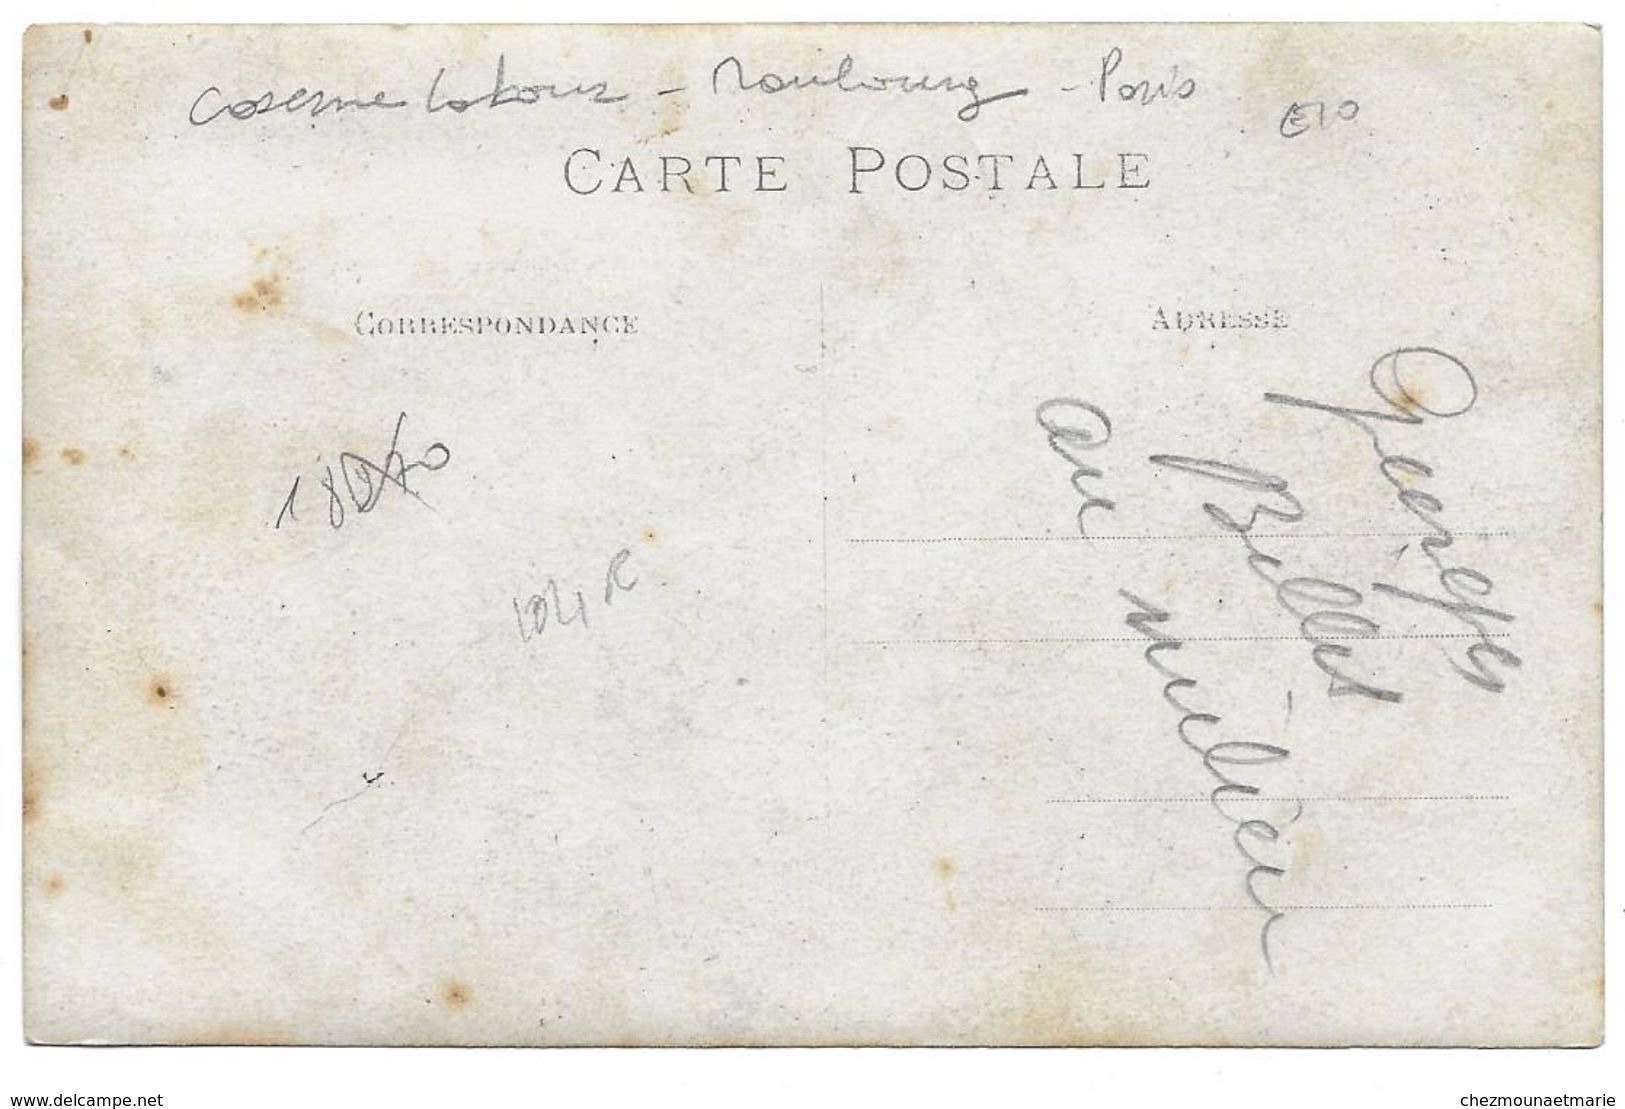 Caserne Latour - Maubourg - Paris
E10
CARTE POSTALE
CORRESPONDANCE
ADRESSE
Georges
Billet
au milieu
104 R
www.delcampe.net
chezmounaetmarie